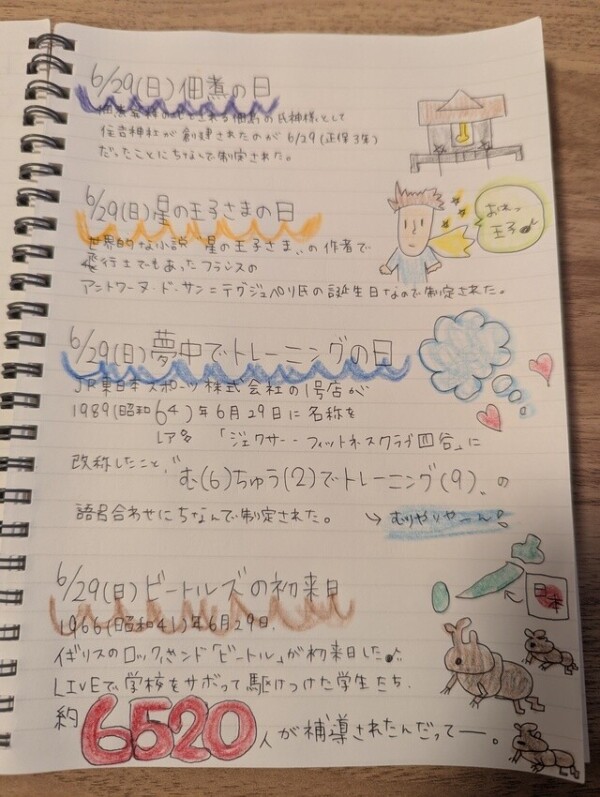 6/29(日)佃煮の日
佃煮発祥の地とされる佃島の氏神様として
住吉神社が創建されたのが 6/29 (正保3年)
だったことにちなんで制定された。
6/29(日)星の王子さまの日
世界的な小説〝星の王子さま〟の作者で
飛行士でもあったフランスの
アントワーヌ・ド・サン=テグジュペリ氏の誕生日なので制定された。
おれっ
王子♪
6/29(日)夢中でトレーニングの日
JR東日本スポーツ株式会社の1号店が
1989(昭和64)年6月29日に名称を
「ジェクサー・フィットネスクラブ四谷」に
改称したこと、〝む(6)ちゅう(2)でトレーニング(9)〟の
語呂合わせにちなんで制定された。
→むりやりやーん!
6/29(日)ビートルズの初来日
1966(昭和41)年6月29日.
イギリスのロックバンド「ビートル」が初来日した♪
LIVEで学校をサボって駆けつけた学生たち、
約6520人が補導されたんだってー。
日本